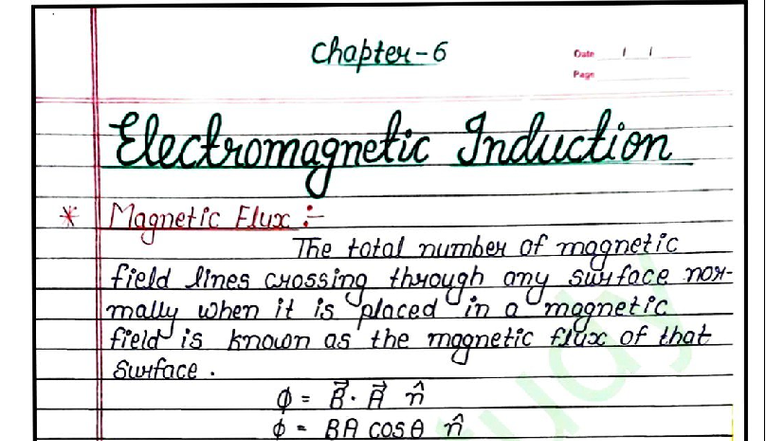 Chapter-6
Date / /
Page
Electromagnetic Induction
* Magnetic Flux :-
The total number of magnetic
field lines crossing through any surface nor-
mally when it is placed in a magnetic
field is known as the magnetic flux of that
surface.
ϕ = B⃗ · A⃗ n̂
ϕ = BA cosθ n̂